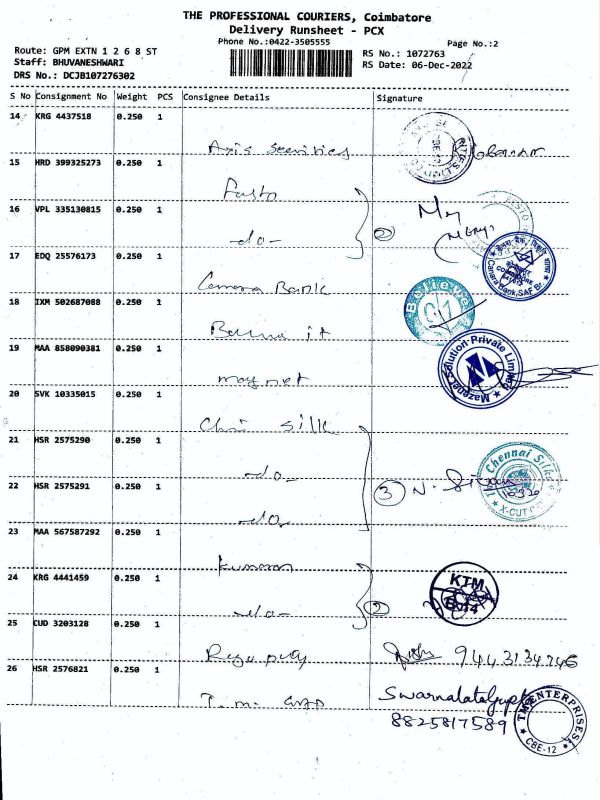 THE PROFESSIONAL COURIERS, Coimbatore
Delivery Runsheet - PCX
Phone No.:0422-3505555
Page No.:2
Route: GPM EXTN 1 2 6 8 ST
RS No.: 1072763
Staff: BHUVANESHWARI
RS Date: 06-Dec-2022
DRS No.: DCJB107276302
S No Consignment No Weight PCS Consignee Details Signature
14 KRG 4437518 0.250 1
Axis Securities
15 HRD 399325273 0.250 1
Fasto
16 VPL 335130815 0.250 1
-do- 2
17 EDQ 25576173 0.250 1
Canara Bank
Canara Bank, SAF Br.
18 IXM 502687088 0.250 1
19 MAA 858090381 0.250 1
magnet
Mazenet Solution Private Limited
20 SVK 10335015 0.250 1
Chennai Silk
21 HSR 2575290 0.250 1
-do-
The Chennai Silks
X-CUT
22 HSR 2575291 0.250 1
3
-do-
23 MAA 567587292 0.250 1
Kumaran
24 KRG 4441459 0.250 1
KTM
-do- 2
25 CUD 3203128 0.250 1
9443134746
26 HSR 2576821 0.250 1
Swarnalata Gupta
8825817589
TMS ENTERPRISES
CBE-12